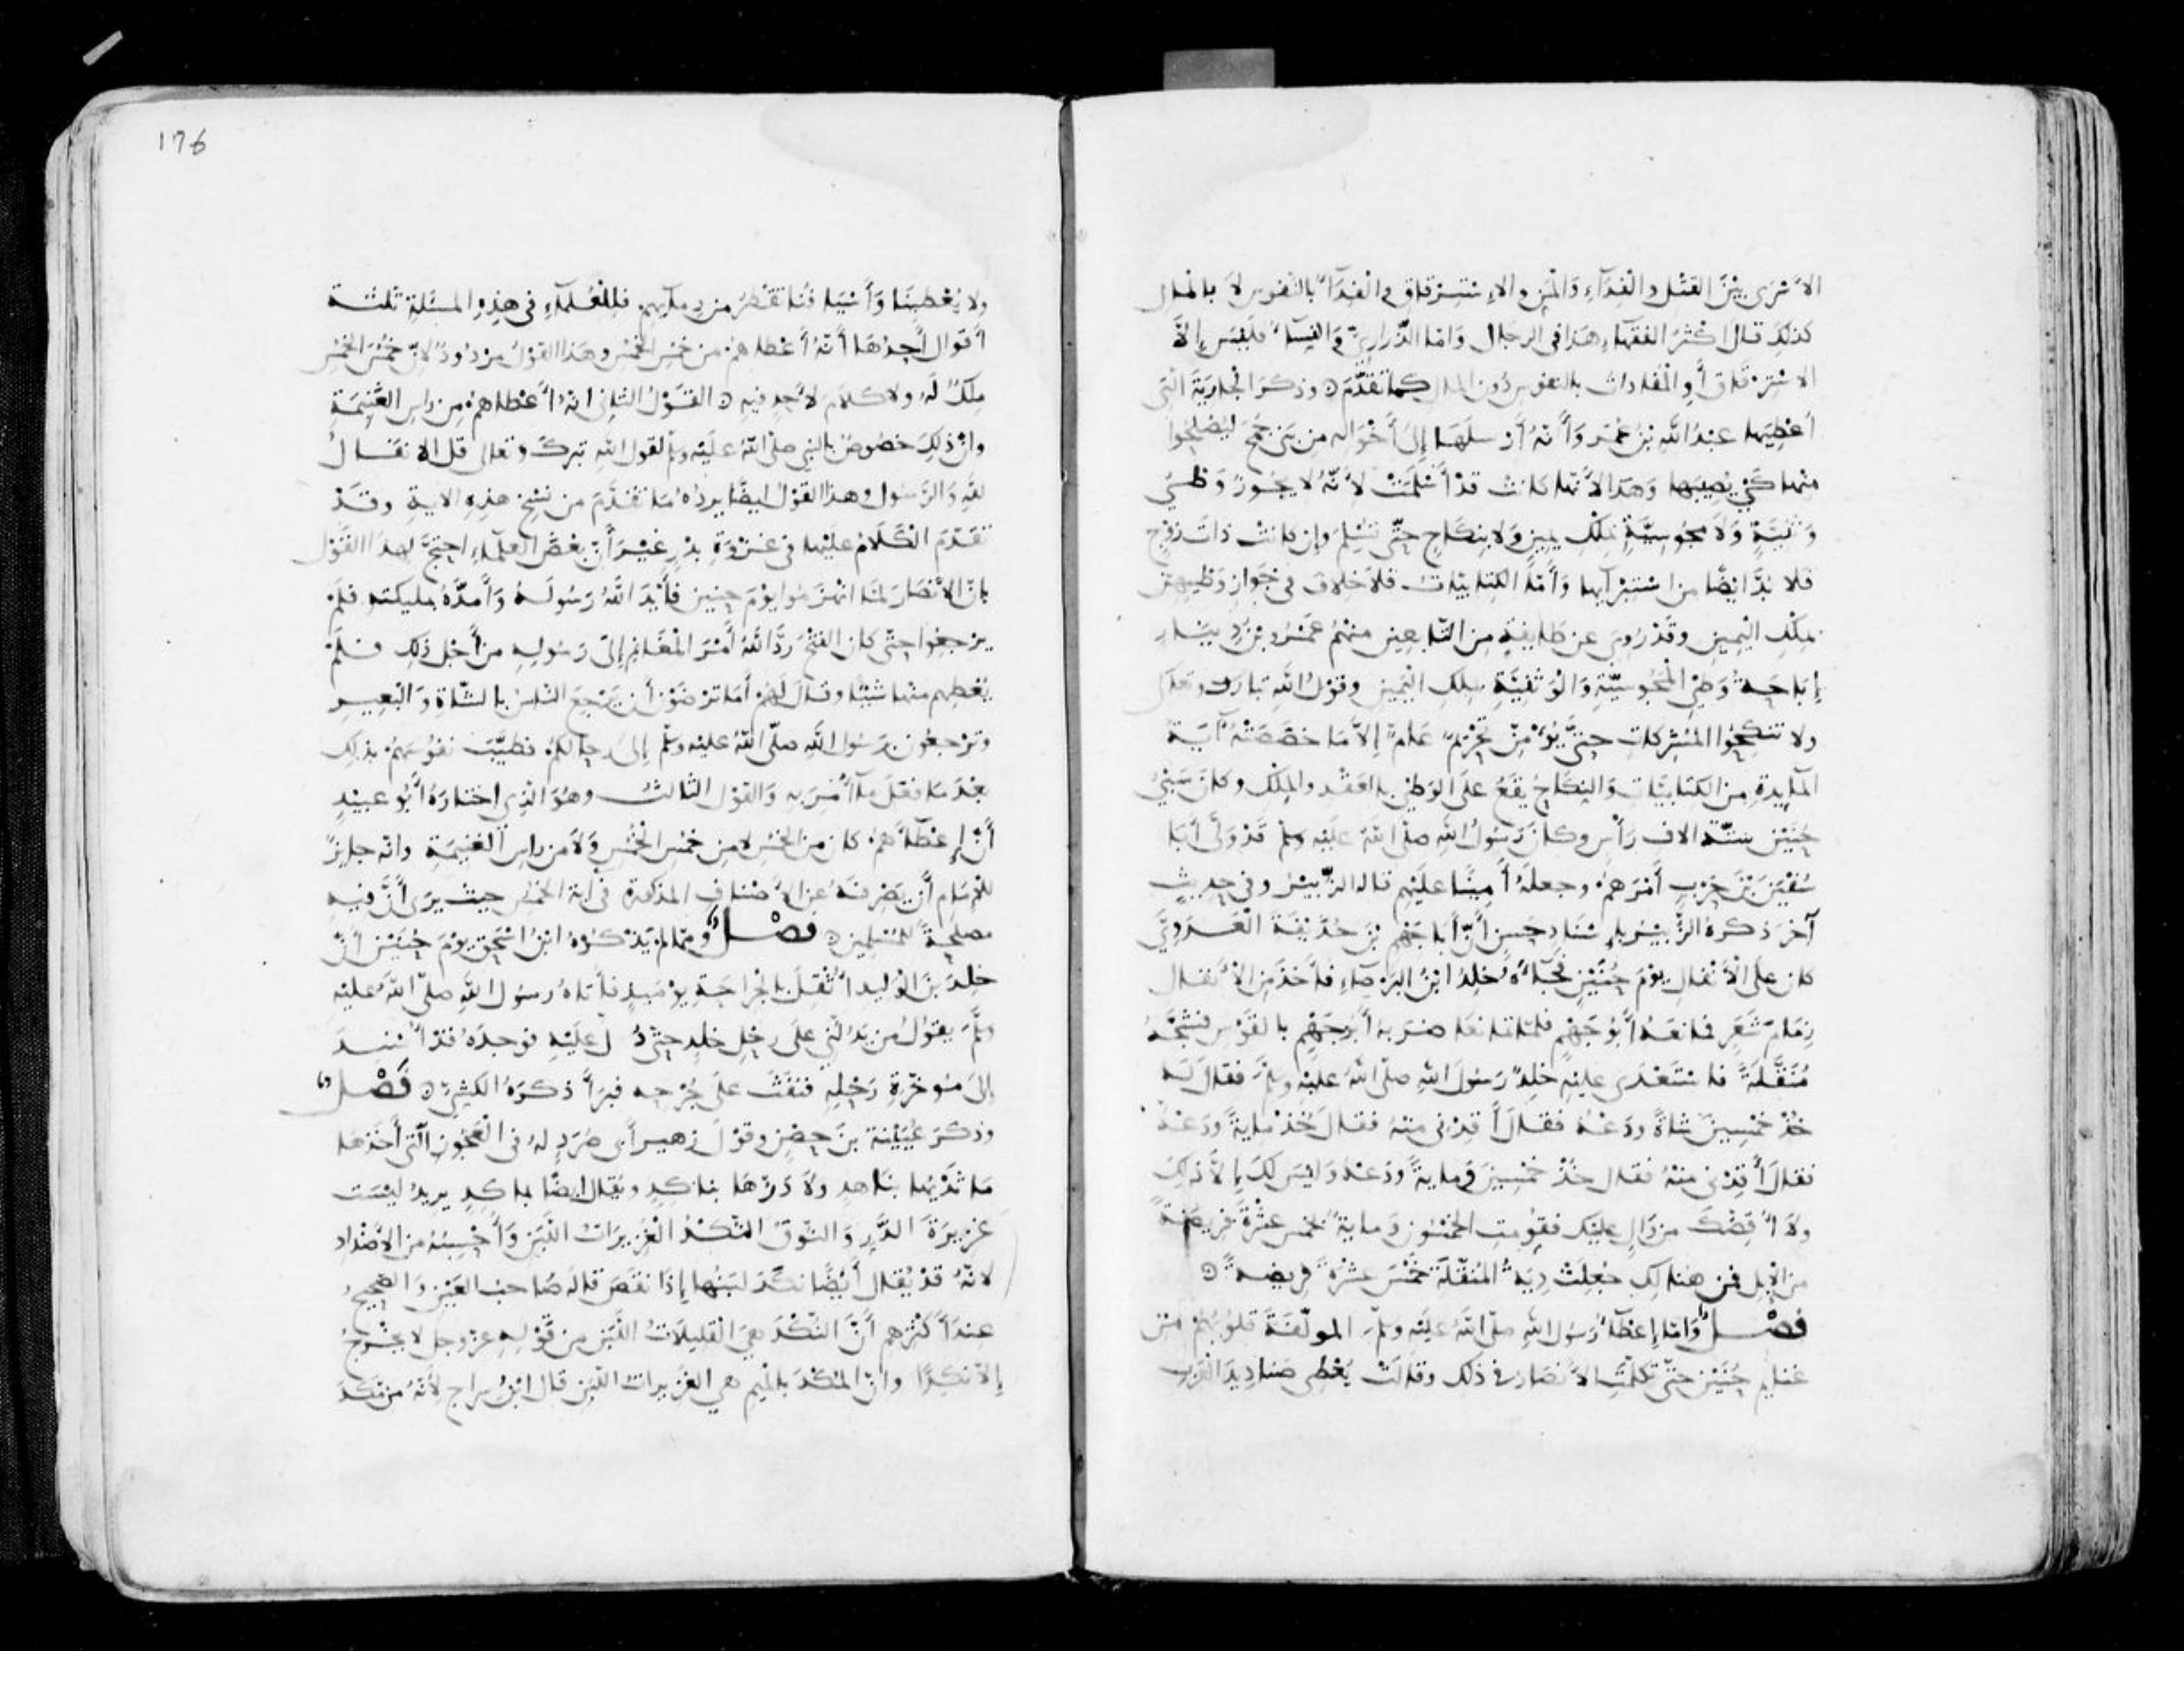 الأسرى بين القتل والفداء والمن والاسترقاق والفداء بالنفوس لا بالمال
كذلك قال أكثر الفقهاء هذا في الرجال وأما الذراري والنساء فليس إلا
الاسترقاق أو المفادات بالنفوس دون المال كما تقدم وذكر الجارية التي
أعطيها عبد الله بن عمر وأنه أرسلها إلى أخواله من بني جمح ليصلحوا
منها كي يصيبها وهذا لأنها كانت قد أسلمت لأنه لا يجوز وطئ
وثنية ولا مجوسية بملك يمين ولا بنكاح حتى تسلم وإن كانت ذات زوج
فلا بد أيضا من استبرآيها وأما الكتابيات فلا خلاف في جواز وطيهن
بملك اليمين وقد روي عن طايفة من التابعين منهم عمرو بن دينار
إباحة وطئ المجوسية والوثنية بملك اليمين وقول الله تبارك وتعلى
ولا تنكحوا المشركات حتى يؤمن تحريم عام إلا ما خصصته آية
المايدة من الكتابيات والنكاح يقع على الوطئ بالعقد والملك وكان سبي
حنين ستة الاف رأس وكان رسول الله صلى الله عليه وسلم قد ولى أبا
سفين بن حرب أمرهم وجعله أمينا عليهم قاله الزبير وفي حديث
آخر ذكره الزبير بإسناد حسن أن أبا جهم بن حذيفة العدوي
كان على الأنفال يوم حنين فجآءه خلد ابن البرصاء فأخذ من الأنفال
زمام شعر فمانعه أبو جهم فلما تمانعا ضربه أبو جهم بالقوس فشجه
منقلة فاستعدى عليه خلد رسول الله صلى الله عليه وسلم فقال له
خذ خمسين شاة ودعه فقال أقدني منه فقال خذ ماية ودعه
فقال أقدني منه فقال خذ خمسين وماية ودعه وليس لك إلا ذلك
ولا أقصك من وال عليك فقومت الخمسون وماية بخمس عشرة فريضة
من الإبل فمن هنالك جعلت دية المنقلة خمس عشرة فريضة
فصل وأما إعطاء رسول الله صلى الله عليه وسلم المولفة قلوبهم من
غنايم حنين حتى تكلمت الأنصار في ذلك وقالت يعطي صناديد العرب
176
ولا يعطينا وأسيافنا تقطر من دمآيهم فللعلمآء في هذه المسئلة ثلثة
أقوال أحدها أنه أعطاهم من خمس الخمس وهذا القول مردود لأن خمس الخمس
ملك له ولا كلام لأحد فيه القول الثاني أنه أعطاهم من راس الغنيمة
وان ذلك خصوص بالنبي صلى الله عليه وسلم لقول الله تبرك وتعالى قل الانفال
لله والرسول وهذا القول أيضا يرده ما تقدم من نسخ هذه الاية وقد
تقدم الكلام عليها في غزوة بدر غير أن بعض العلماء احتج لهذا القول
بان الأنصار لما انهزموا يوم حنين فأيد الله رسوله وأمده بمليكته فلم
يرجعوا حتى كان الفتح رد الله أمر المغانم إلى رسوله من أجل ذلك فلم
يعطهم منها شيئا وقال لهم أما ترضون أن يرجع الناس بالشاة والبعير
وترجعون برسول الله صلى الله عليه وسلم إلى رحالكم فطيب نفوسهم بذلك
بعد ما فعل ما أمر به والقول الثالث وهو الذي اختاره أبو عبيد
أن إعطآءهم كان من الخمس لا من خمس الخمس ولا من راس الغنيمة وانه جايز
للإمام أن يصرفه عن الأصناف المذكورة في آية الخمس حيث يرى أن فيه
مصلحة للمسلمين فصل ومما لم يذكره ابن اسحق يوم حنين أن
خلد بن الوليد أثقل بالجراحة يوميذ فأتاه رسول الله صلى الله عليه
وسلم يقول من يدلني على رحل خلد حتى دل عليه فوجده قد أسند
إلى موخرة رحله فنفث على جرحه فبرأ ذكره الكشي فصل
وذكر عيينة بن حصن وقول زهير أبي صرد له في العجوز التي أخذها
ما ثديها بناهد ولا درها بناكد ويقال أيضا بماكد يريد ليست
غزيرة الدر والنوق النكد الغزيرات اللبن وأحسبه من الأضداد
لأنه قد يقال أيضا نكد لبنها إذا نقص قاله صاحب العين والصحيح
عند أكثرهم أن النكد هي القليلات اللبن من قوله عز وجل لا يخرج
إلا نكدا وان المكد بالميم هي الغزيرات اللبن قال ابن سراج لأنه من نكد